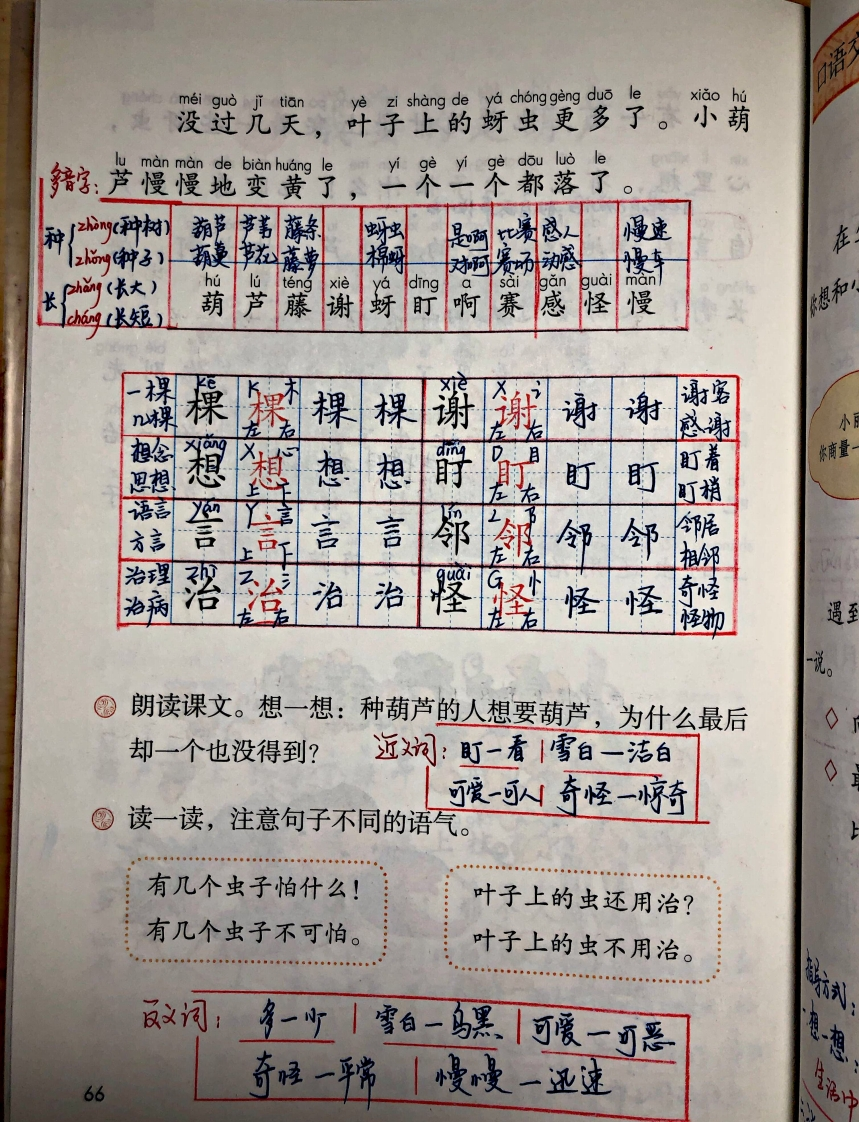 méi guò jǐ tiān yè zi shàng de yá chóng gèng duō le xiǎo hú
没过几天，叶子上的蚜虫更多了。小葫
lu màn màn de biàn huáng le yí gè yí gè dōu luò le
芦慢慢地变黄了，一个一个都落了。
多音字：
种 zhòng（种树）
zhǒng（种子）
长 zhǎng（长大）
cháng（长短）
葫芦 芦苇 藤条 蚜虫 是啊 比赛 感人 慢速
葫蔓 芦花 藤萝 棉蚜 对啊 赛场 动感 慢车
hú lú téng xiè yá dīng a sài gǎn guài màn
葫 芦 藤 谢 蚜 盯 啊 赛 感 怪 慢
kē K 木 xiè X 讠
一棵 棵 棵 棵 棵 谢 谢 谢 谢 谢客
几棵 左 右 左 右 感谢
xiǎng X 心 dīng D 目
想念 想 想 想 想 盯 盯 盯 盯 盯着
思想 上 下 左 右 盯梢
yán Y 言 lín L 阝
语言 言 言 言 言 邻 邻 邻 邻 邻居
方言 上 下 左 右 相邻
zhì Z 氵 guài G 忄
治理 治 治 治 治 怪 怪 怪 怪 奇怪
治病 左 右 左 右 怪物
朗读课文。想一想：种葫芦的人想要葫芦，为什么最后
却一个也没得到？
近义词：盯—看 雪白—洁白
可爱—可人 奇怪—惊奇
读一读，注意句子不同的语气。
有几个虫子怕什么！
有几个虫子不可怕。
叶子上的虫还用治？
叶子上的虫不用治。
反义词：多—少 雪白—乌黑 可爱—可恶
奇怪—平常 慢慢—迅速
66
口语交
在生
你想和小
小丽
你商量一
遇到
一说。
指导方式：
一想一想：
生活中